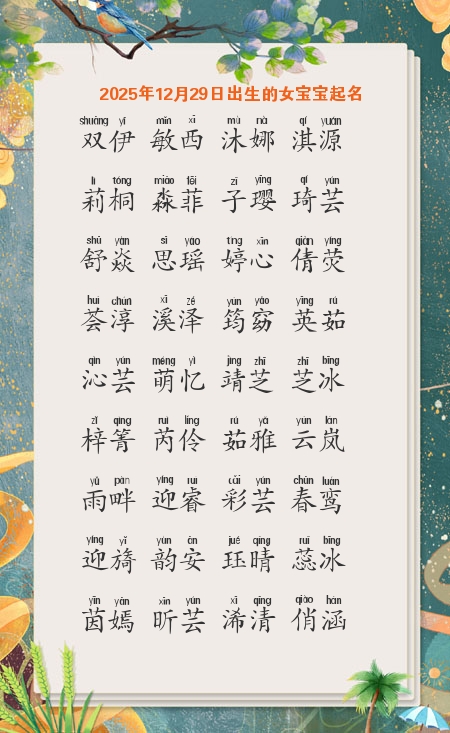 2025年12月29日出生的女宝宝起名
shuāng yī mǐn xī mù nà qí yuán
双伊 敏西 沐娜 淇源
lì tóng miǎo fēi zǐ yīng qí yún
莉桐 淼菲 子璎 琦芸
shū yàn sī yáo tíng xīn qiàn yíng
舒焱 思瑶 婷心 倩荧
huì chún xī zé yún yǎo yīng rú
荟淳 溪泽 筠窈 英茹
qìn yún méng yì jìng zhī zhī bīng
沁芸 萌忆 靖芝 芝冰
zǐ qìng ruì líng rú yǎ yún lán
梓箐 芮伶 茹雅 云岚
yǔ pàn yíng ruì cǎi yún chūn luán
雨畔 迎睿 彩芸 春鸾
yíng yǐ yùn ān jué qíng ruǐ bīng
迎旖 韵安 珏晴 蕊冰
yīn yān xīn yún xī qīng qiào hán
茵嫣 昕芸 浠清 俏涵